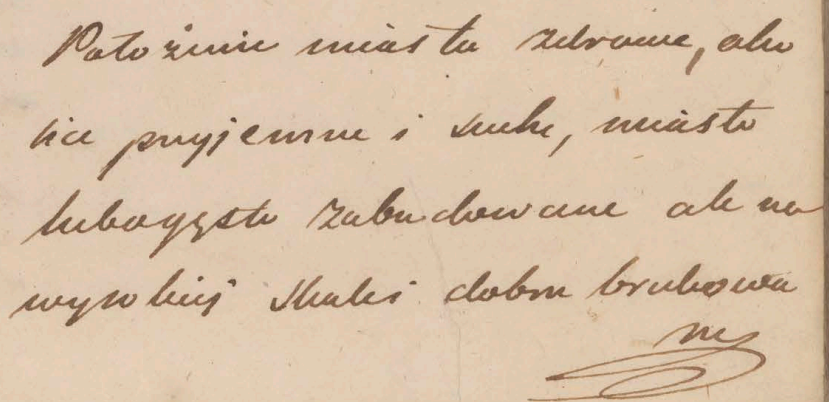 Położenie miasta zdrowe, oko
lice przyjemne i suche, miasto
lubo gęsto zabudowane ale na
wysokiej skale dobrze brukowa
ne